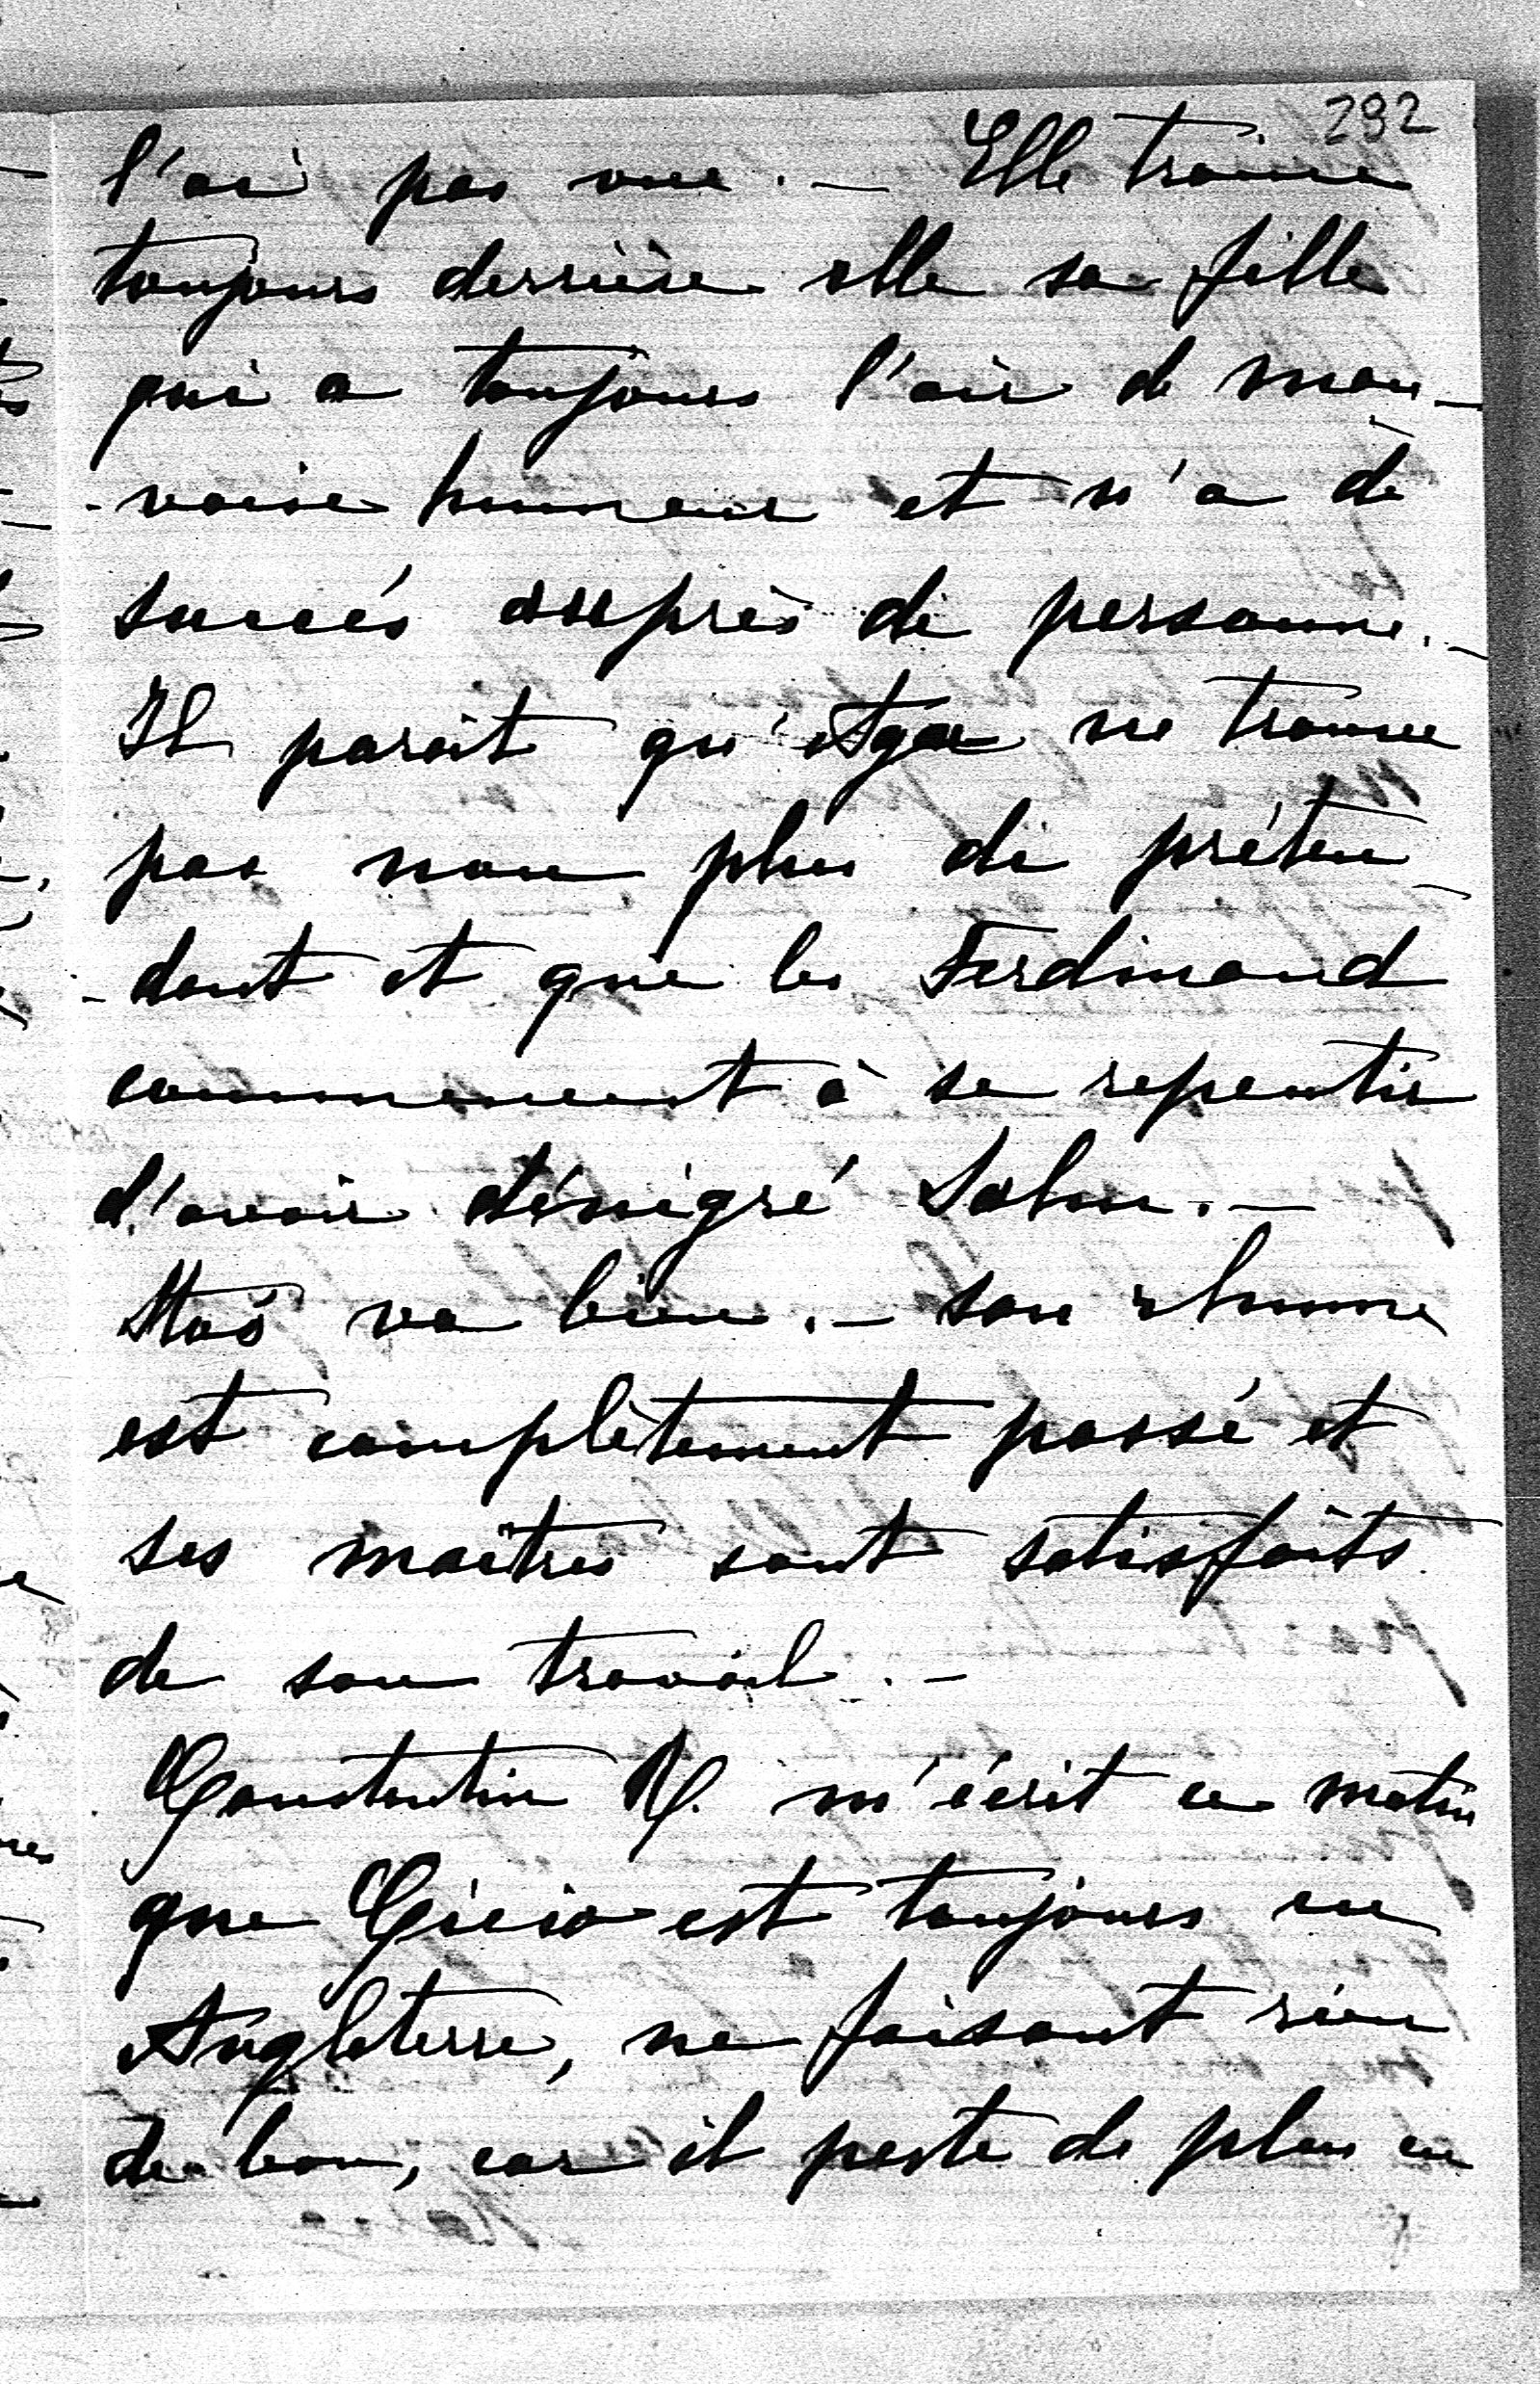 292
l'ai pas vue. — Elle traine
toujours derrière elle sa fille
qui a toujours l'air de mau-
-vaise humeur et n'a de
succés auprès de personne. -
Il parait qu'Aga ne trouve
pas non plus de préten-
-dant et que les Ferdinand
commencent à se repentir
d'avoir dénigré Solm. —
Staś va bien. — son rhume
est complètement passé et
ses maîtres sont satisfaits
de son travail. -
Constantin R. m'écrit ce matin
que Gucio est toujours en
Angleterre, ne faisant rien
de bon, car il peste de plus en